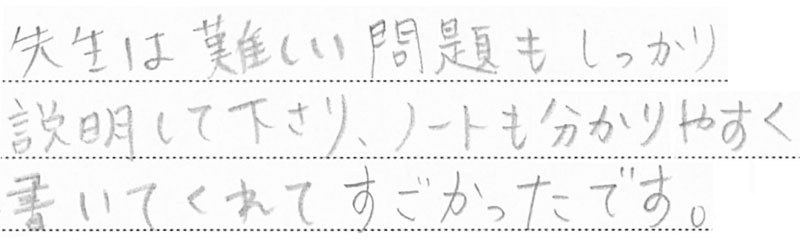 先生は難しい問題もしっかり
説明して下さり、ノートも分かりやすく
書いてくれてすごかったです。